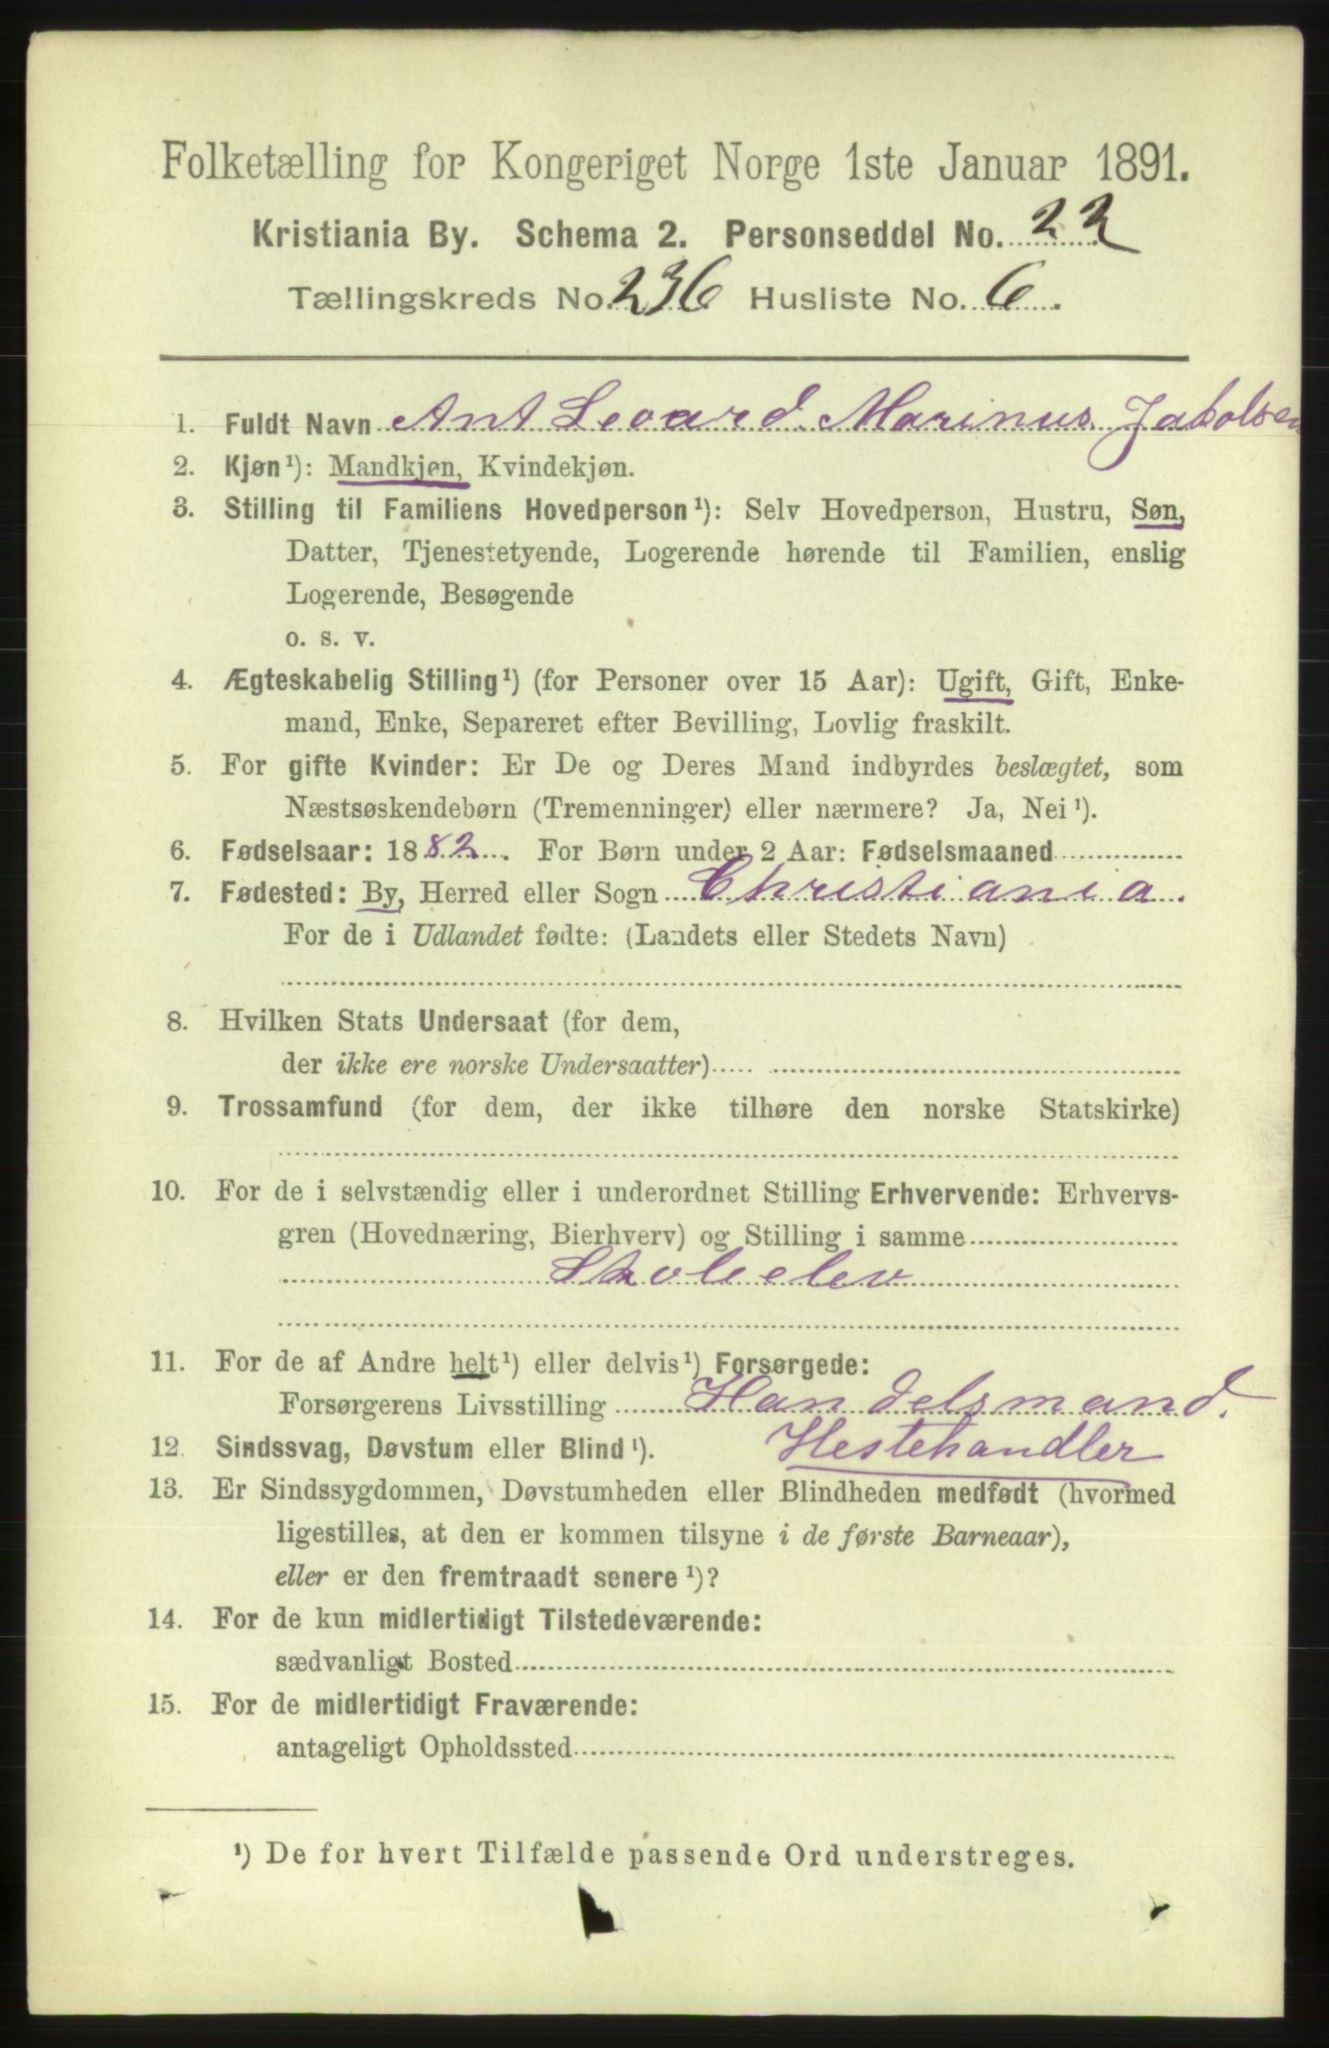 Folketælling for Kongeriget Norge 1ste Januar 1891.
Kristiania By. Schema 2. Personseddel No. 22
Tællingskreds No. 236 Husliste No. 6.
1. Fuldt Navn Ant Levard Marinus Jakobsen
2. Kjøn¹): Mandkjøn, Kvindekjøn.
3. Stilling til Familiens Hovedperson¹): Selv Hovedperson, Hustru, Søn,
Datter, Tjenestetyende, Logerende hørende til Familien, enslig
Logerende, Besøgende
o. s. v.
4. Ægteskabelig Stilling¹) (for Personer over 15 Aar): Ugift, Gift, Enke-
mand, Enke, Separeret efter Bevilling, Lovlig fraskilt.
5. For gifte Kvinder: Er De og Deres Mand indbyrdes beslægtet, som
Næstsøskendebørn (Tremenninger) eller nærmere? Ja, Nei¹).
6. Fødselsaar: 1882. For Børn under 2 Aar: Fødselsmaaned
7. Fødested: By, Herred eller Sogn Christiania.
For de i Udlandet fødte: (Landets eller Stedets Navn)
8. Hvilken Stats Undersaat (for dem,
der ikke ere norske Undersaatter)
9. Trossamfund (for dem, der ikke tilhøre den norske Statskirke)
10. For de i selvstændig eller i underordnet Stilling Erhvervende: Erhvervs-
gren (Hovednæring, Bierhverv) og Stilling i samme
Skoleelev
11. For de af Andre helt¹) eller delvis¹) Forsørgede:
Forsørgerens Livsstilling Handelsmand.
12. Sindssvag, Døvstum eller Blind¹). Hestehandler
13. Er Sindssygdommen, Døvstumheden eller Blindheden medfødt (hvormed
ligestilles, at den er kommen tilsyne i de første Barneaar),
eller er den fremtraadt senere¹)?
14. For de kun midlertidigt Tilstedeværende:
sædvanligt Bosted
15. For de midlertidigt Fraværende:
antageligt Opholdssted
¹) De for hvert Tilfælde passende Ord understreges.